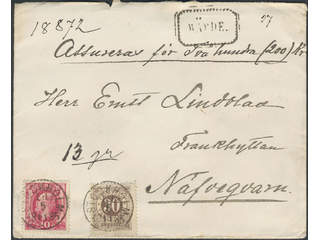 18872
VÄRDE.
Assureras för Två hundra (200) Kr
Herr Ernst Lindblad
13 gr
Frankhyttan
Näfveqvarn.
20
30